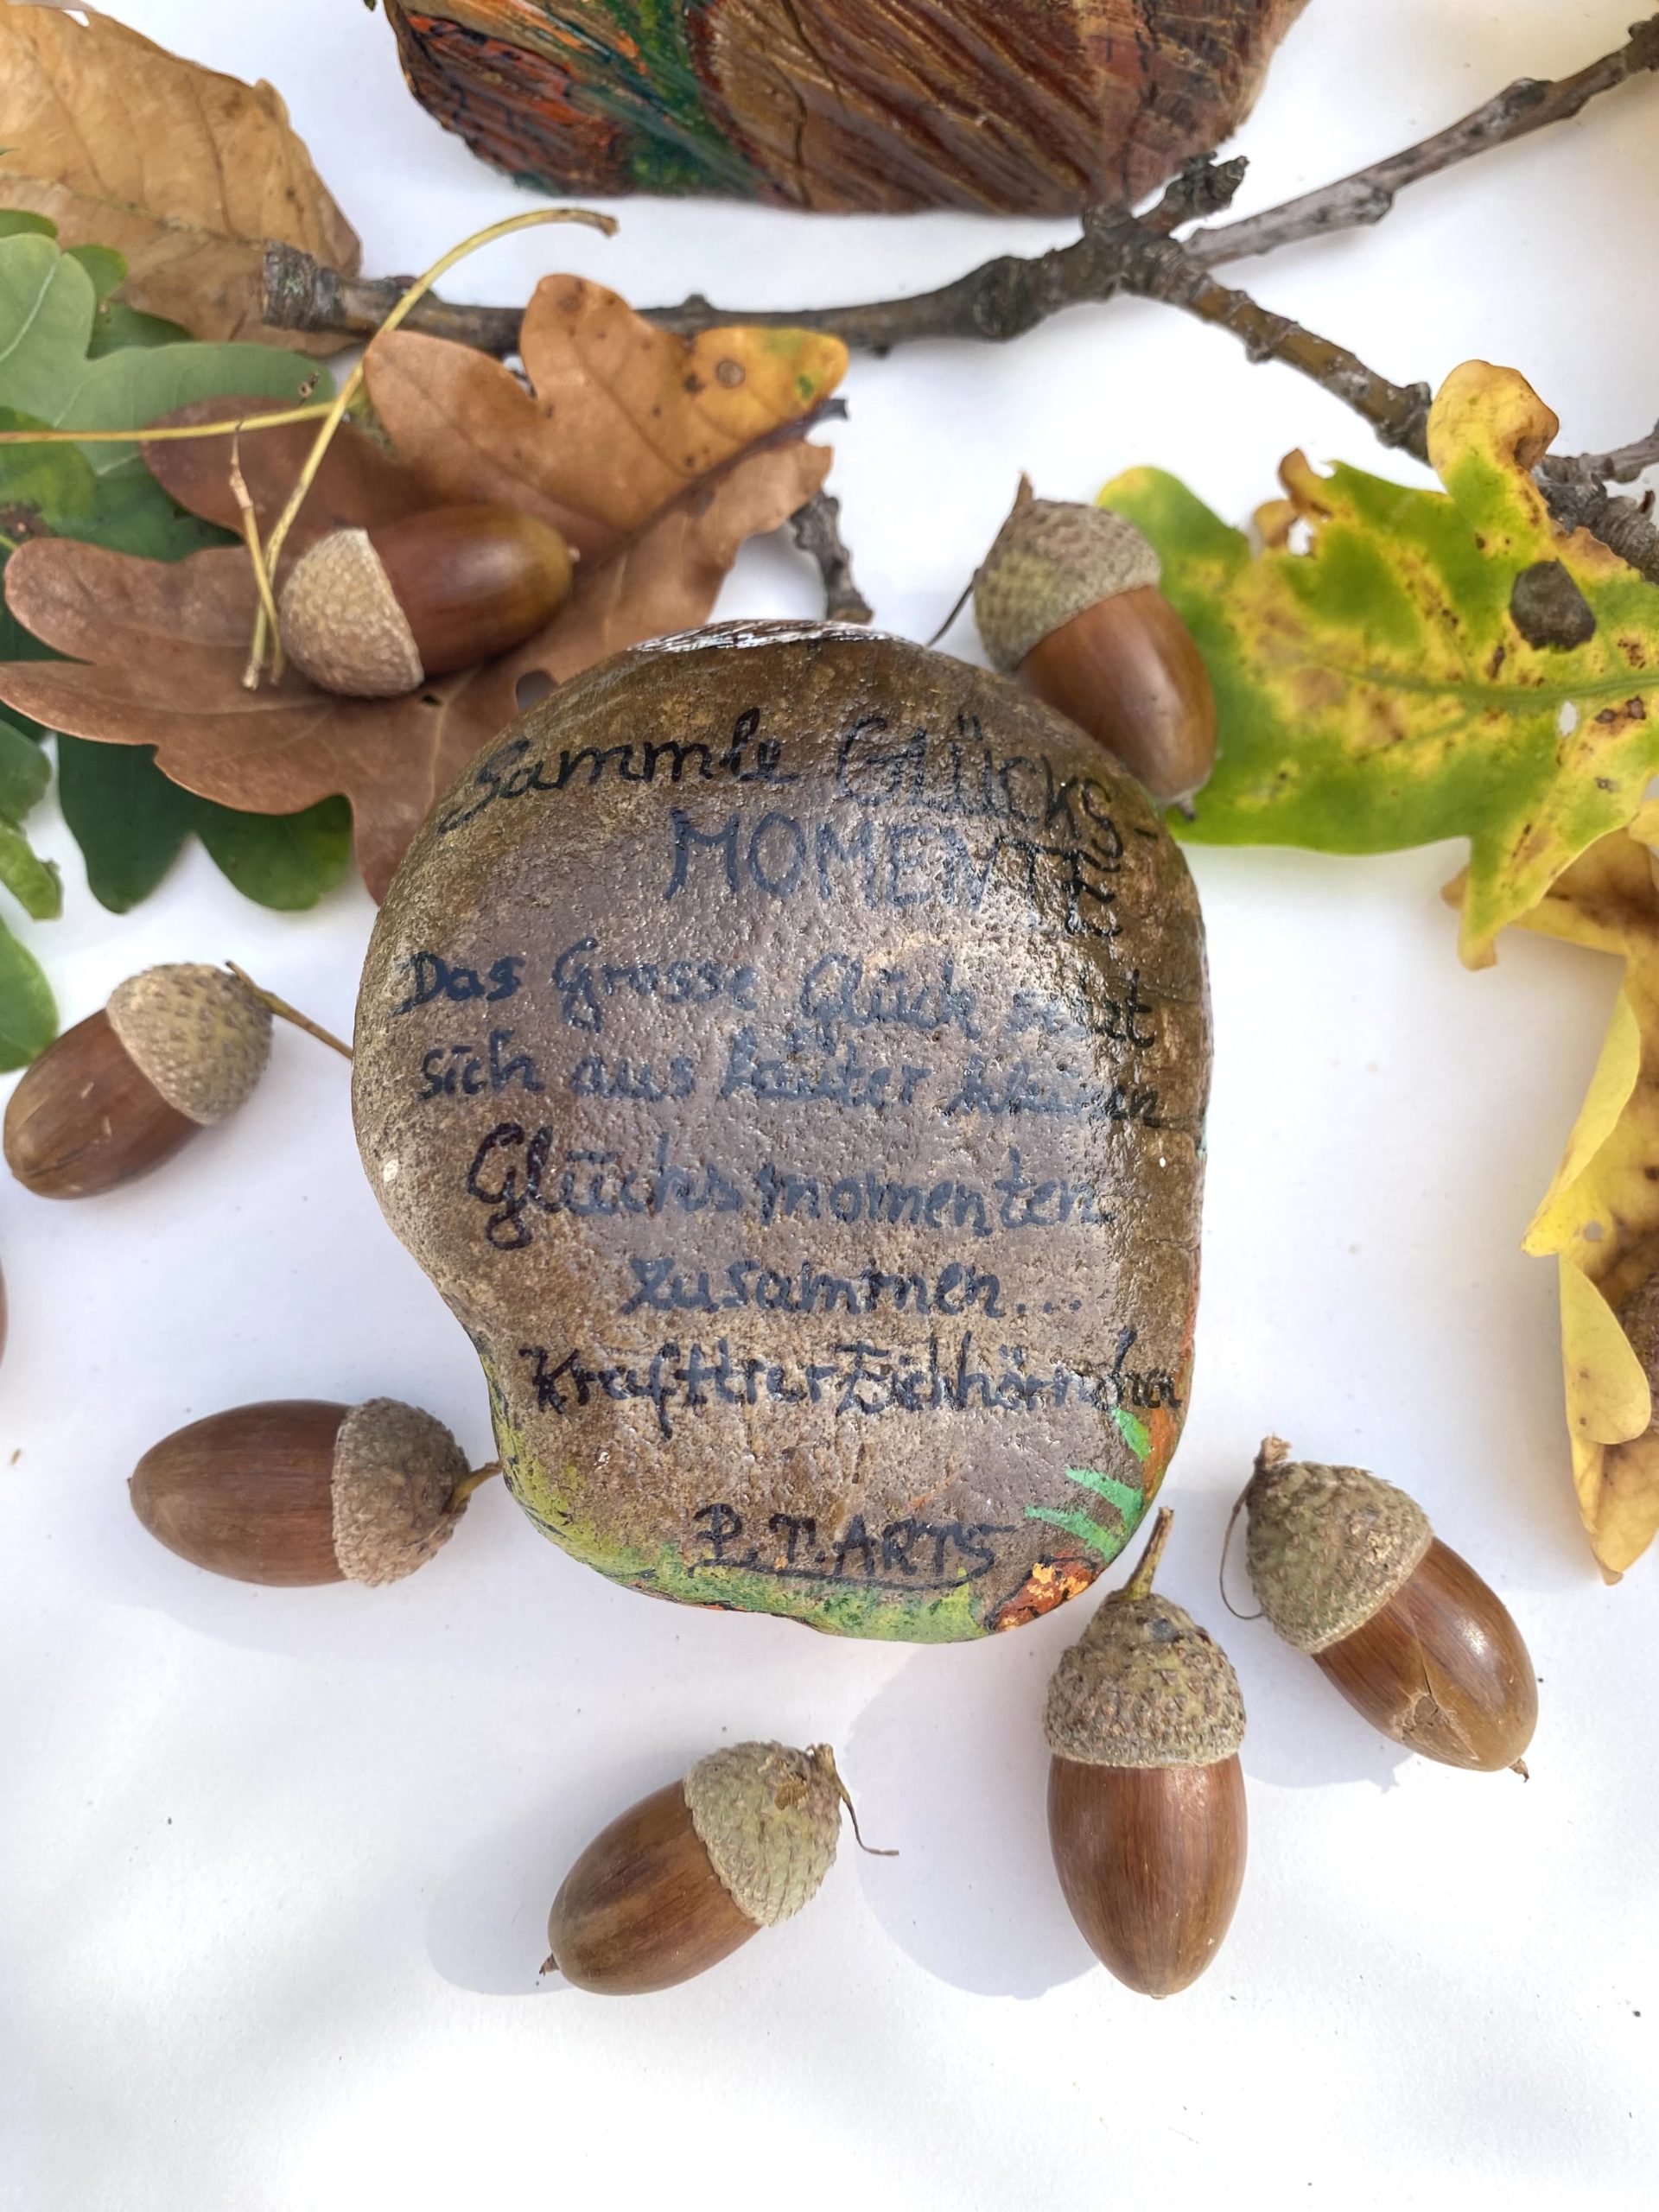 Sammle GLÜCKS-
MOMENTE
Das Grosse Glück setzt
sich aus lauter kleinen
Glücksmomenten
zusammen...
Krafttier Eichhörnchen
P.T.ARTS